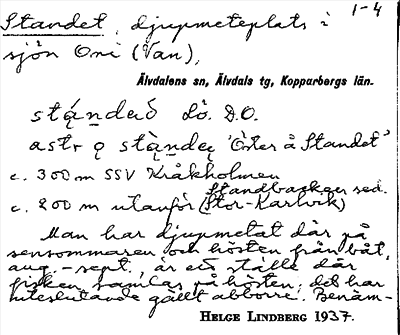 1-4
Standet, djupmeteplats i
sjön Oni (Van),
Älvdalens sn, Älvdals tg, Kopparbergs län.
stą́ndeð Lö. D.O.
astr o stą̀ndeę 'Öster å Standet'
c. 300 m SSV Kråkholmen
Standbacken sed.
c. 200 m utanför (Stor-Karlvik)
Man har djupmetat där på
sensommaren och hösten från båt,
aug.-sept., är ett ställe där
fisken samlas på hösten; det har
uteslutande gällt abborre. Benäm-
HELGE LINDBERG 1937.